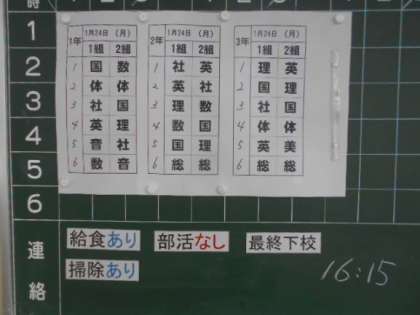 時
1
2
3
4
5
6
1年 1月24日 (月)
1組 2組
1 国 数
2 体 体
3 社 国
4 英 理
5 音 社
6 数 音
2年 1月24日 (月)
1組 2組
1 社 英
2 英 社
3 理 数
4 数 国
5 国 理
6 総 総
3年 1月24日 (月)
1組 2組
1 理 英
2 国 理
3 社 国
4 体 体
5 英 美
6 総 総
連絡
給食あり 部活なし 最終下校
掃除あり 16:15